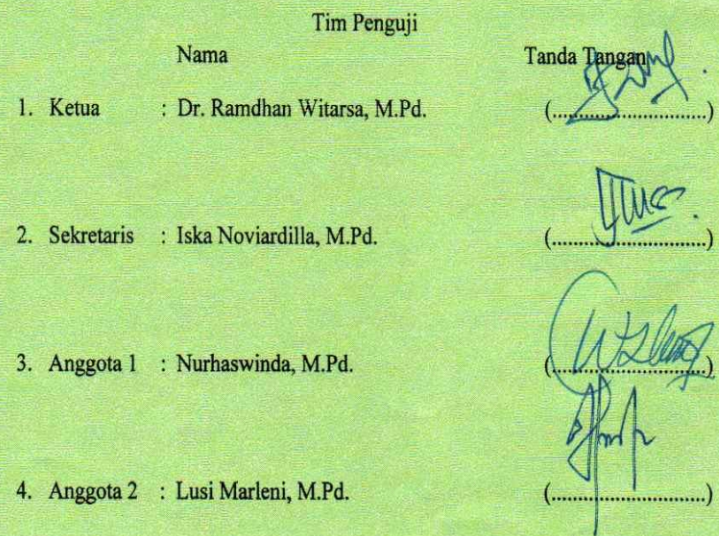 Tim Penguji
Nama Tanda Tangan
1. Ketua : Dr. Ramdhan Witarsa, M.Pd. (............................)
2. Sekretaris : Iska Noviardilla, M.Pd. (............................)
3. Anggota 1 : Nurhaswinda, M.Pd. (............................)
4. Anggota 2 : Lusi Marleni, M.Pd. (............................)